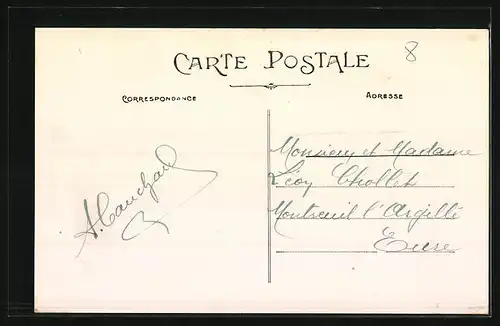 8
CARTE POSTALE
CORRESPONDANCE
ADRESSE
Monsieur et Madame
Léon Chollet
Montreuil l'Argillé
Eure